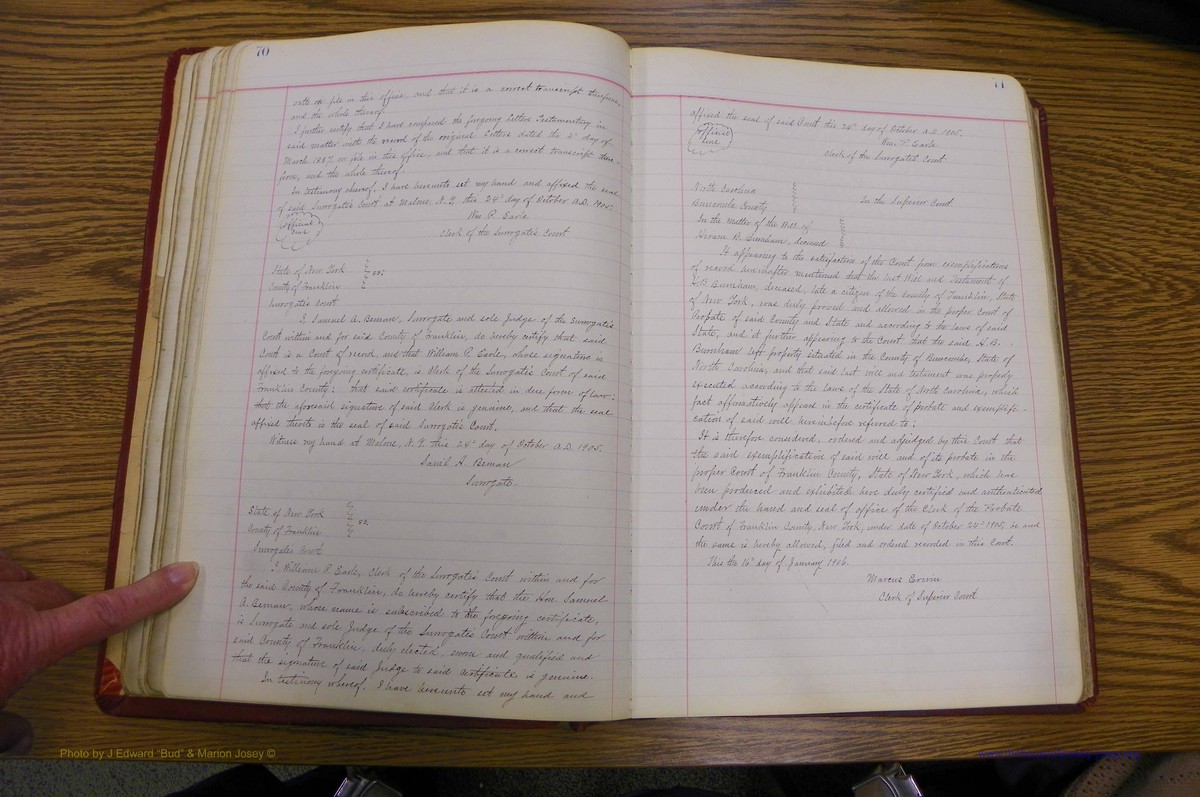 70
with on file in this office, and that it is a correct transcript therefrom,
and the whole thereof.
I further certify that I have compared the forgoing Letters Testamentary in
said matter with the record of the original Letters dated the 2" day of
March 1887 on file in this office, and that it is a correct transcript there-
from, and the whole thereof.
In testimony whereof, I have hereunto set my hand and affixed the seal
of said Surrogates Court at Malone, N.Y. this 24" day of October A.D. 1905.
Official
Wm. P. Earle
Clerk of the Surrogate's Court
State of New York
County of Franklin ss:
Surrogates Court
I, Samuel A. Beman, Surrogate and sole Judge of the Surrogate's
Court within and for said County of Franklin, do hereby certify that said
Court is a Court of record, and that William P. Earle, whose signature is
affixed to the forgoing certificate, is Clerk of the Surrogate Court of said
Franklin County; that said certificate is attested in due form of law;
that the aforesaid signature of said Clerk is genuine, and that the seal
affixed thereto is the seal of said Surrogate's Court.
Witness my hand at Malone, N.Y. this 24" day of October A.D. 1905.
Sam'l A. Beman
Surrogate.
State of New York
County of Franklin ss.
Surrogates Court
I, William P. Earle, Clerk of the Surrogate's Court within and for
the said County of Franklin, do hereby certify that the Hon. Samuel
A. Beman, whose name is subscribed to the forgoing certificate,
is Surrogate and sole Judge of the Surrogates Court within and for
said County of Franklin, duly elected, sworn and qualified and
that the signature of said Judge to said certificate is genuine.
In testimony whereof, I have hereunto set my hand and
71
affixed the seal of said Court this 24" day of October A.D. 1905.
Official
Wm. P. Earle
Clerk of the Surrogate's Court
North Carolina
Buncombe County In the Superior Court
In the matter of the Will of
Hiram B. Burnham, deceased
It appearing to the satisfaction of the Court from exemplifications
of record hereinafter mentioned that the last Will and Testament of
H.B. Burnham, deceased, late a citizen of the County of Franklin, State
of New York, was duly proved and allowed in the proper Court of
Probate of said County and State and according to the laws of said
State, and it further appearing to the Court that the said H.B.
Burnham left property situated in the County of Buncombe, State of
North Carolina, and that said last will and testament was properly
executed according to the laws of the State of North Carolina, which
fact affirmatively appears in the certificate of probate and exemplifi-
cation of said will hereinbefore referred to;
It is therefore considered, ordered and adjudged by this Court that
the said exemplification of said will and of its probate in the
proper Court of Franklin County, State of New York, which have
been produced and exhibited here duly certified and authenticated
under the hand and seal of office of the Clerk of the Probate
Court of Franklin County, New York, under date of October 24" 1905, be and
the same is hereby allowed, filed and ordered recorded in this Court.
This the 16" day of January 1906.
Marcus Erwin
Clerk of Superior Court
Photo by J Edward "Bud" & Marion Josey ©